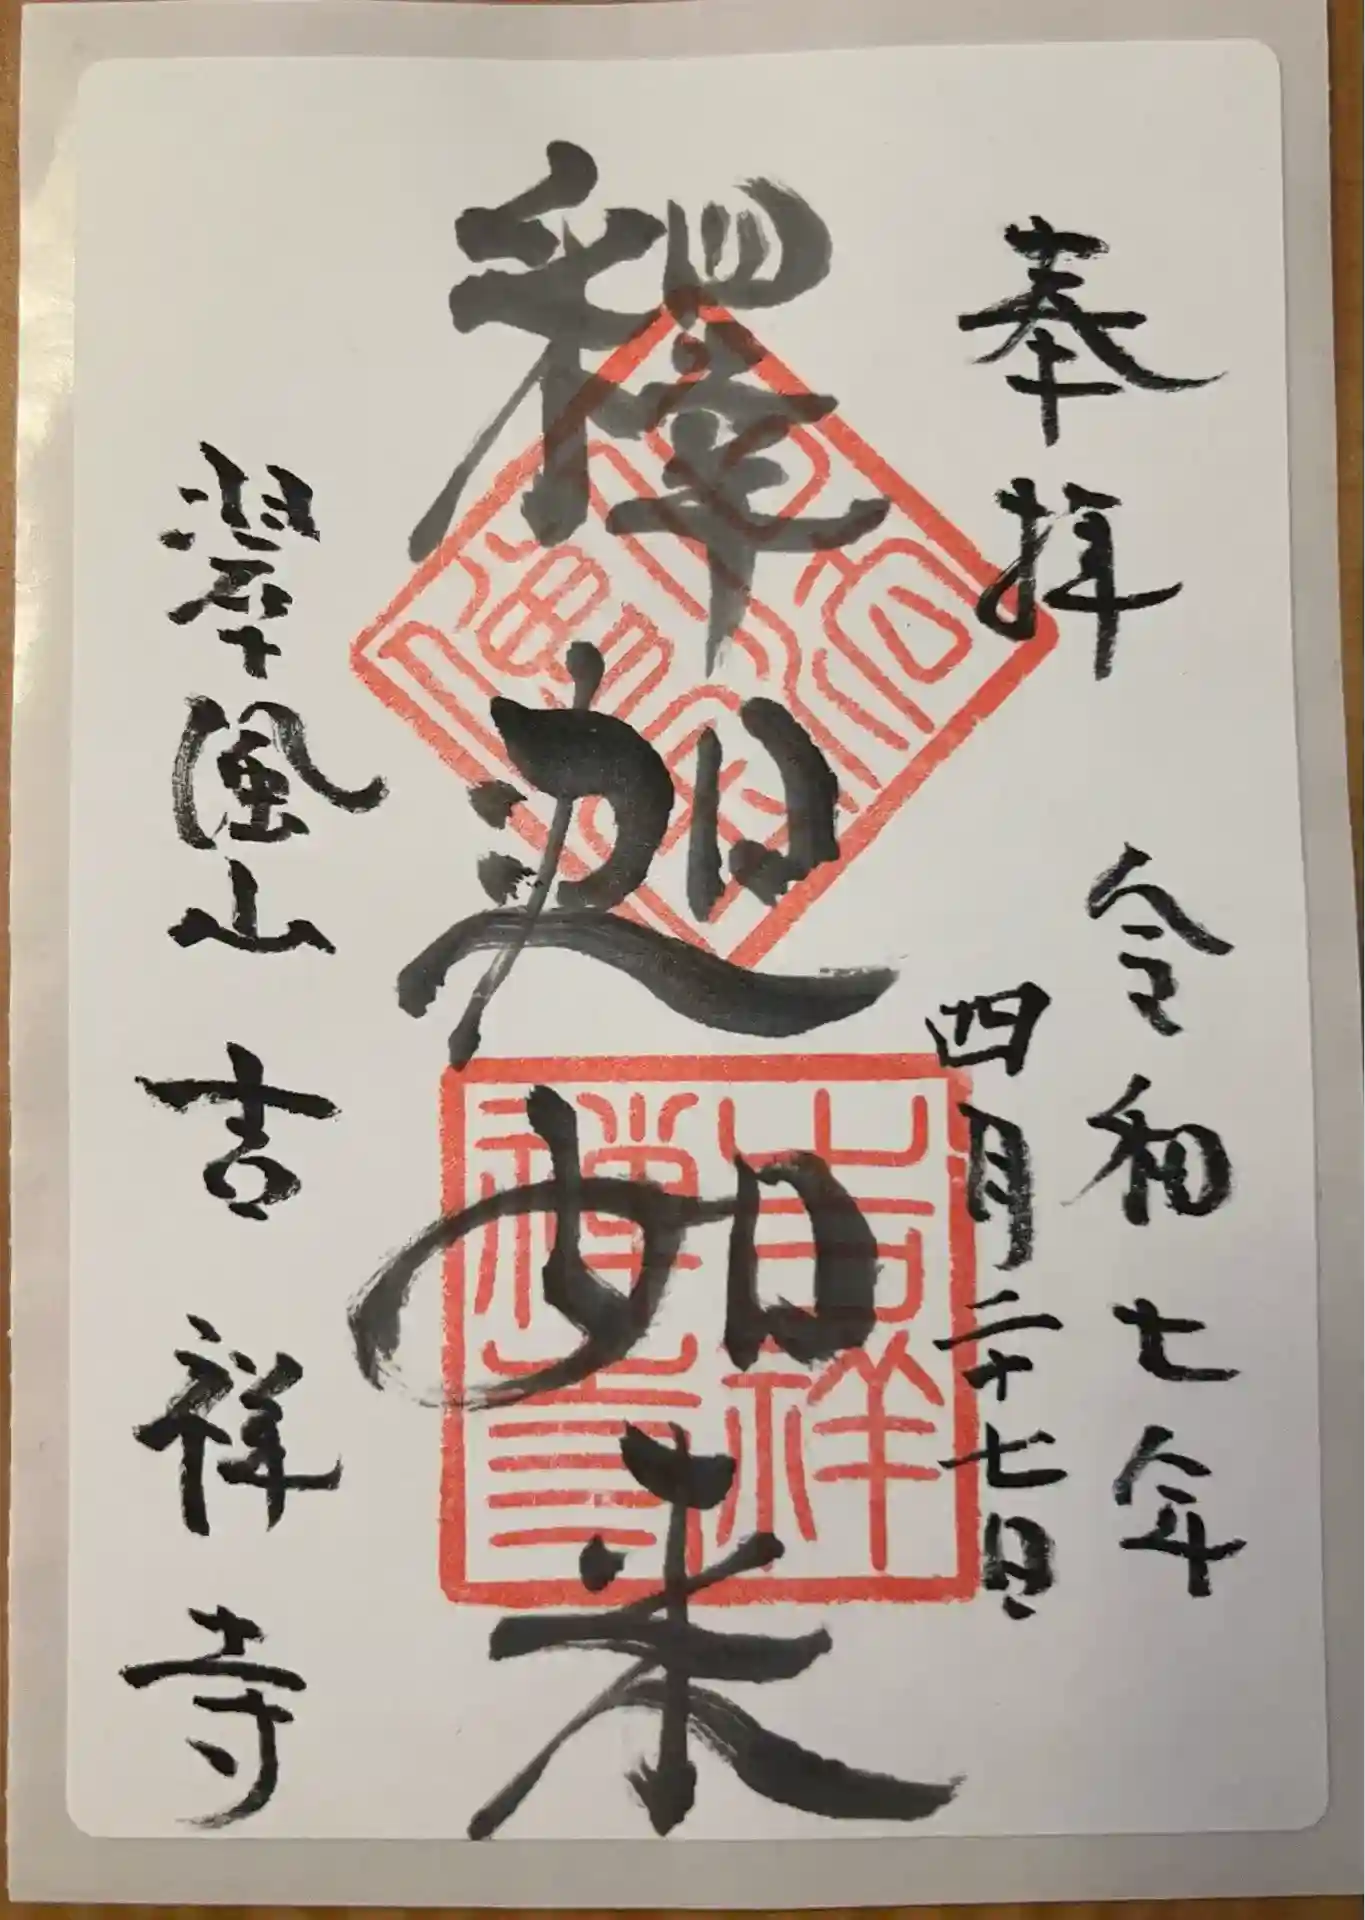 奉拝
令和七年
四月二十七日
釋迦如来
翠風山 吉祥寺
吉祥
禅寺